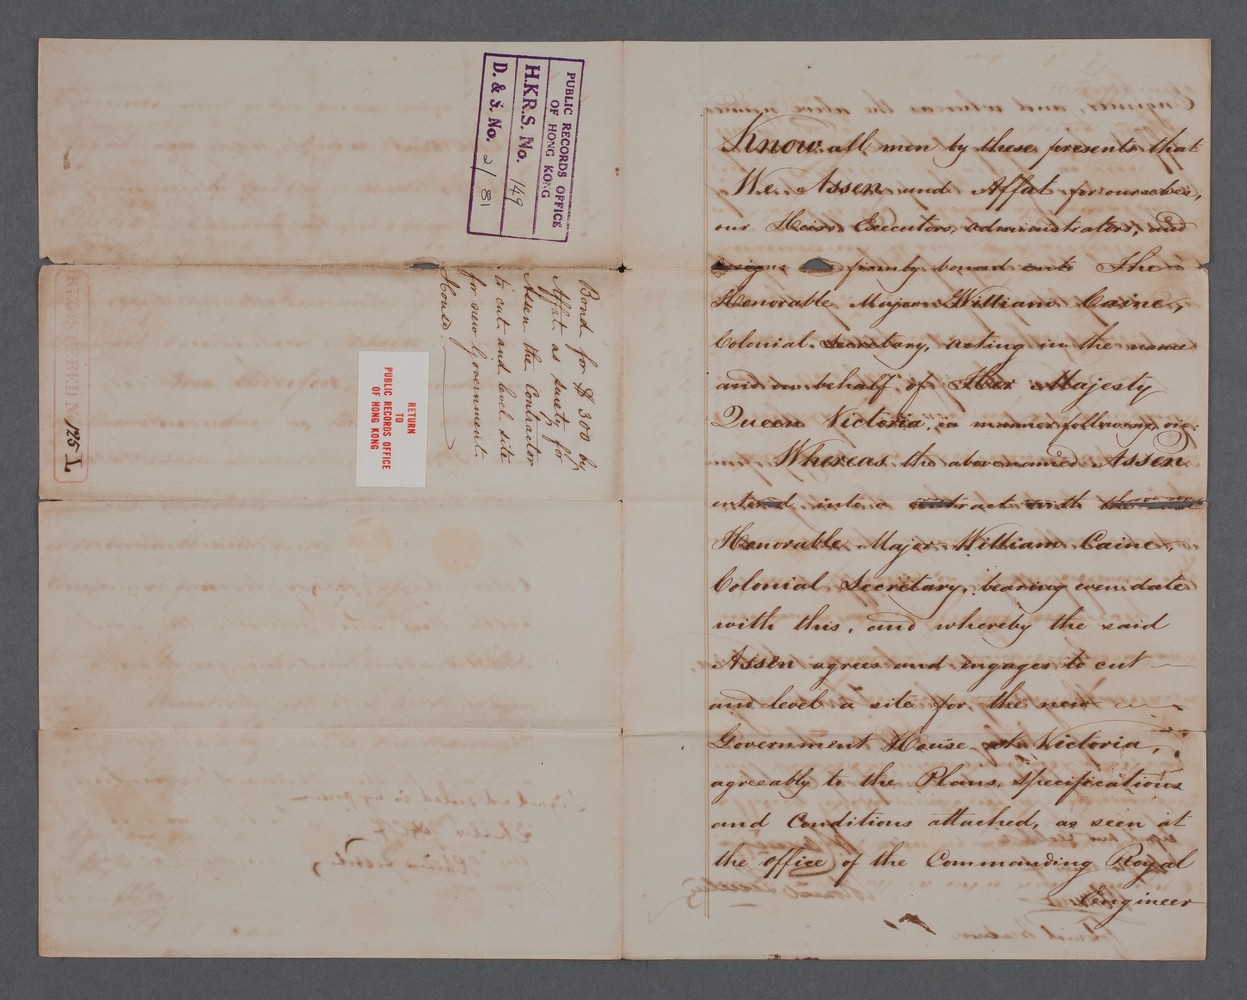 PUBLIC RECORDS OFFICE
OF HONG KONG
H.K.R.S. No. 149
D. & S. No. 2/81
Bond for $300 by
Affat as surety for
Assen the Contractor
to cut and level site
for new Government
House.
RETURN
TO
PUBLIC RECORDS OFFICE
OF HONG KONG
REGISTERED No. 125 L
Know all men by these presents that
We Assen and Affat for ourselves,
our Heirs Executors, administrators, and
assigns firmly bound unto The
Honorable Major William Caine,
Colonial Secretary, acting in the name
and on behalf of Her Majesty
Queen Victoria, in manner following, viz:
Whereas the abovenamed Assen
entered into a contract with the
Honorable Major William Caine,
Colonial Secretary, bearing even date
with this, and whereby the said
Assen agrees and engages to cut
and level a site for the new
Government House at Victoria,
agreeably to the Plans, Specifications
and Conditions attached, as seen at
the office of the Commanding Royal
Engineer